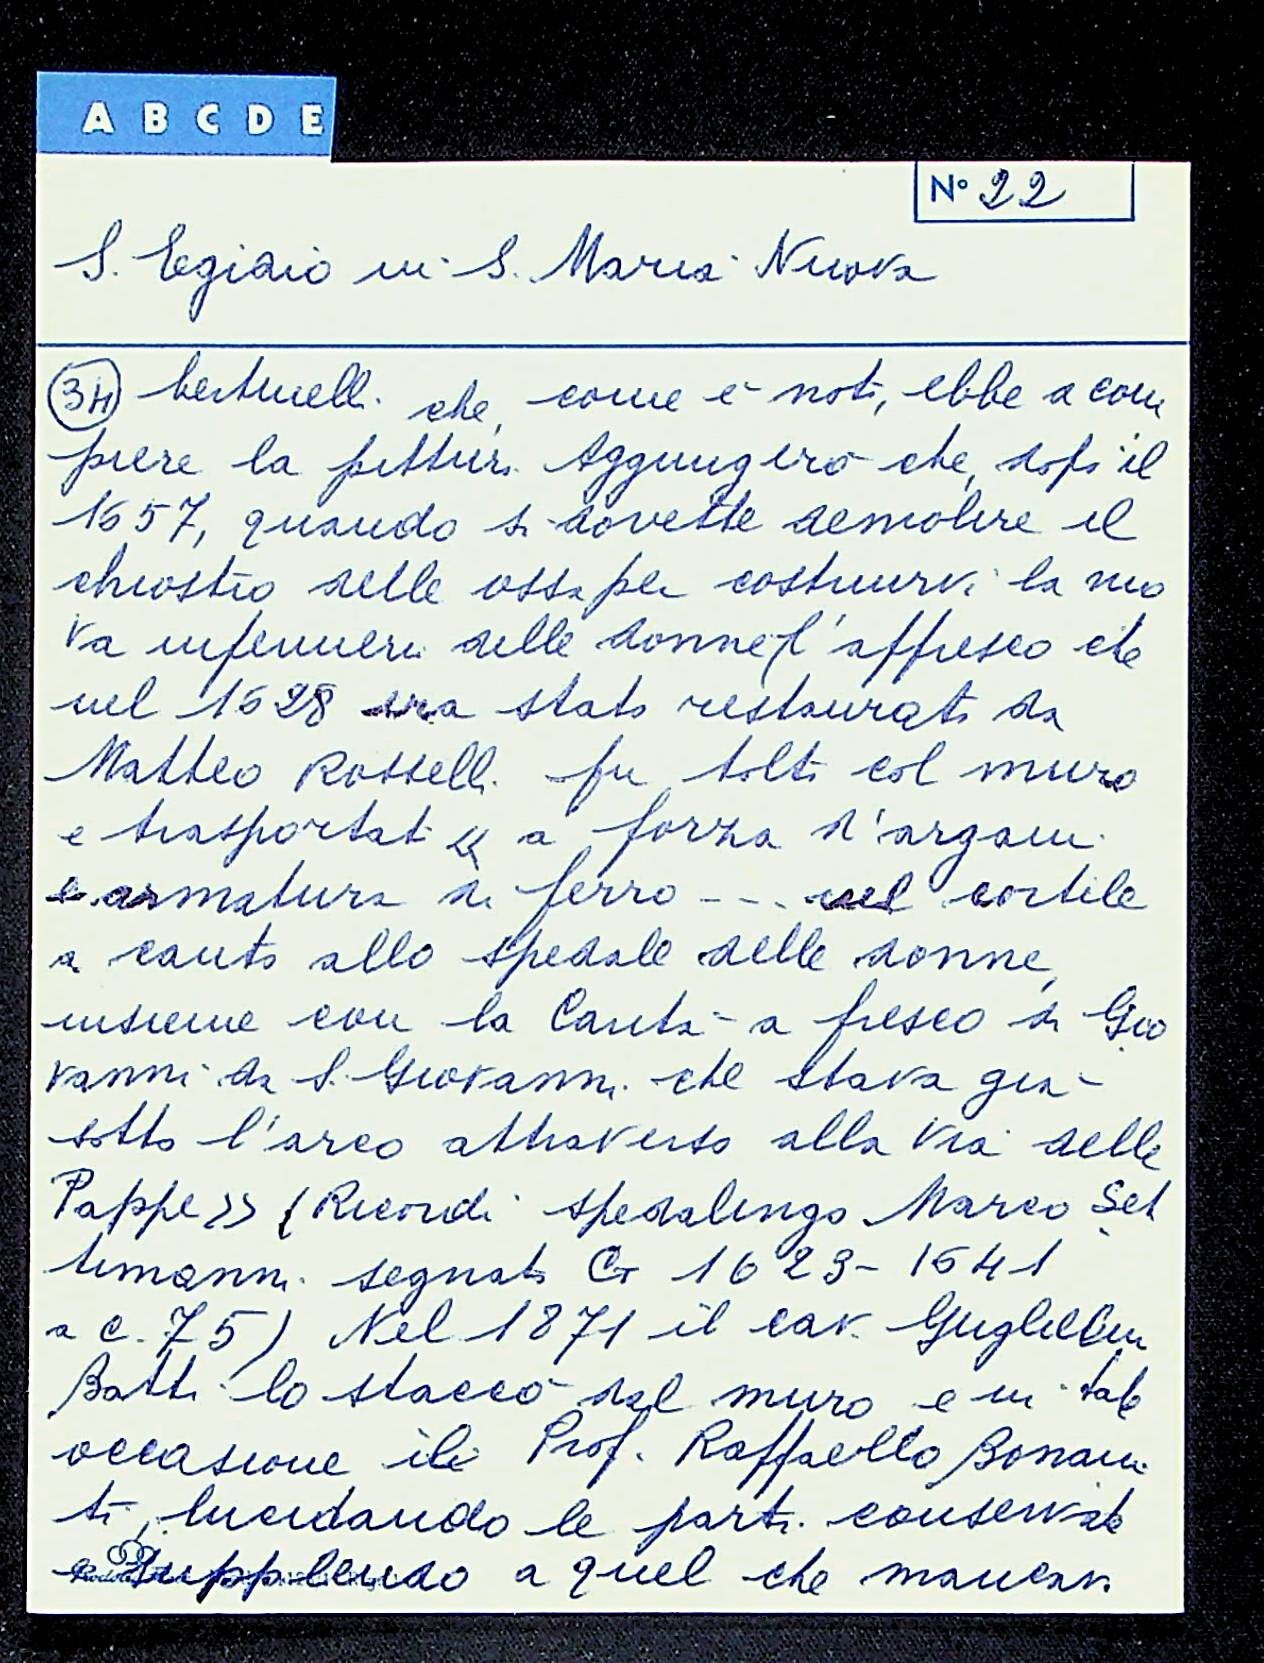 A B C D E
N° 22
S. Egidio in S. Maria Nuova
34 bertinelli che, come è noto, ebbe a com
piere la pittura. Aggiungerò che, dopo il
1657, quando si dovette demolire il
chiostro delle ossa per costruirvi la nuo
va infermeria delle donne, l'affresco che
nel 1628 era stato restaurato da
Matteo Rosselli fu tolto col muro
e trasportato « a forza d'argani
e armatura di ferro --- nel cortile
a canto allo spedale delle donne,
insieme con la Carità a fresco di Gio
vanni da S. Giovanni che stava già
sotto l'arco attraverso alla via delle
Pappe » (Ricordi spedalingo Marco Set
timanni segnato G 1623-1641
a c. 75) Nel 1871 il cav. Guglielmo
Botti lo staccò dal muro e in tale
occasione il Prof. Raffaello Bonaiu
ti, lucidando le parti conservate
e supplendo a quel che mancava